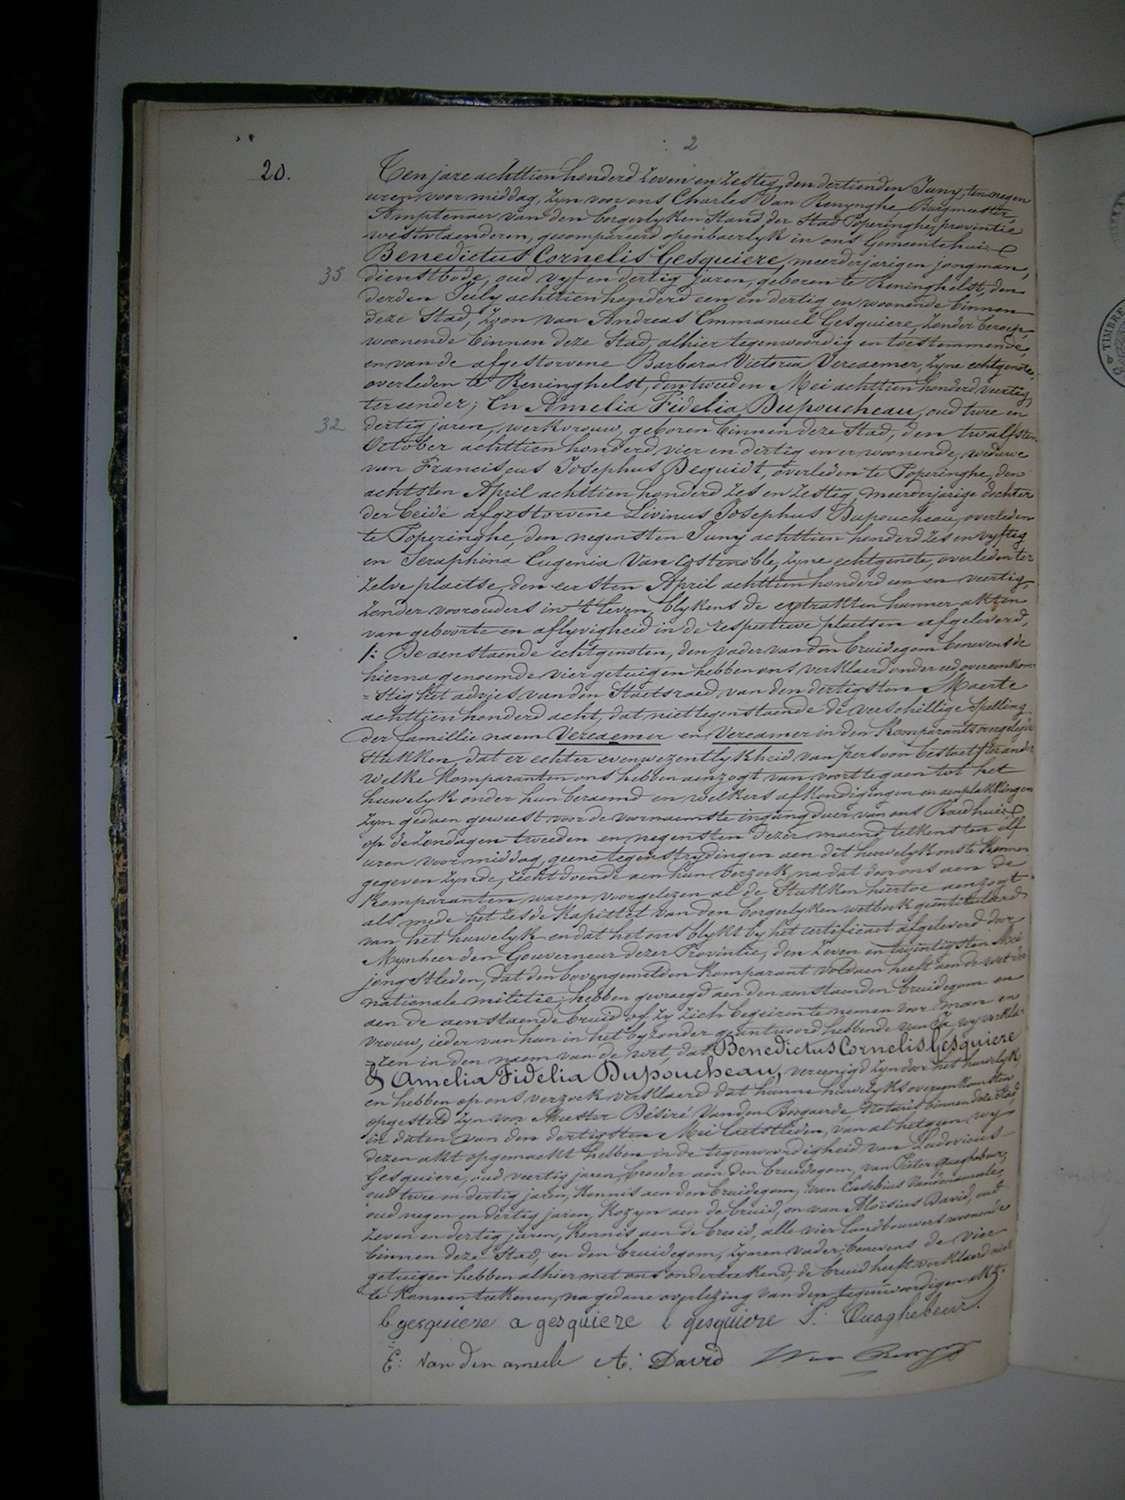 2
20.
Ten jare achttien honderd zeven en zestig, den dertienden Juny, ten negen
uren voor middag, zyn voor ons Charles Van Renynghe, Burgmeester,
Amptenaer van den borgerlyken stand der Stad Poperinghe, provintie
westvlaenderen, gecompareerd openbaerlyk in ons Gemeentehuis
Benedictus Cornelis Gesquiere, meerderjarigen jongman,
35 dienstbode, oud vyf en dertig jaren, geboren te Reninghelst, den
derden July achttien honderd een en dertig en woonende binnen
deze Stad, Zoon van Andreas Emmanuel Gesquiere, zonder beroep,
woonende binnen deze Stad, alhier tegenwoordig en toestemmende,
en van de afgestorvene Barbara Victoria Vereaemer, zyne echtgenote,
overleden te Reninghelst, den tweeden Mei achttien honderd veertig,
ter eender; En Amelia Fidelia Dupoucheau, oud twee en
32 dertig jaren, werkvrouw, geboren binnen deze Stad, den twalfsten
October achttien honderd vier en dertig en er woonende, weduwe
van Franciscus Josephus Dequidt, overleden te Poperinghe, den
achtsten April achttien honderd zes en zestig, meerderjarige dochter
der beide afgestorvene Livinus Josephus Dupoucheau, overleden
te Poperinghe, den negensten Juny achttien honderd zes en vyftig
en Seraphina Eugenia Van Costenoble, zyne echtgenote, overleden ter
zelve plaetse, den eersten April achttien honderd een en veertig,
zonder voorouders in 't leven, blykens de extrakten hunner akten
van geboorte en aflyvigheid in de respective plaetsen afgeleverd,
1: De aenstaende echtgenoten, den vader van den bruidegom benevens de
hierna genoemde vier getuigen hebben ons verklaerd onder eed overeenkom-
stig het advies van den Staetsraed van den dertigsten Maerte
achttien honderd acht, dat niettegenstaende de verschillige spelling
der famillie naem Vereaemer en Vereamer in den Komparants overgelegde
stukken, dat er echter evenwezentlykheid van persoon bestaet,
welke komparanten ons hebben aenzogt van voort te gaen tot het
huwelyk onder hun beraemd en welkers afkondigingen en aenplakkingen
zyn gedaen geweest voor de voornaemste ingangdeur van ons Raedhuis
op de zondagen tweeden en negensten dezer maend telkens ten elf
uren voor middag, geene tegenstrydingen aen dit huwelyk ons te kennen
gegeven zynde, recht doende aen hun verzoek, na dat door ons aen de
Komparanten waren voorgelezen al de stukken hiertoe aenzogt
als mede het zesde kapittel van den borgerlyken wetboek geintituleerd
van het huwelyk en dat het ons blykt by het certificaet afgeleverd door
Mynheer den Gouverneur dezer Provintie, den zeven en twintigsten Mei
jongstleden, dat den bovengemelden komparant voldaen heeft aen de wet der
nationale militie, hebben gevraegd aen den aenstaenden bruidegom en
aen de aenstaende bruid of zy zich begeiren te nemen voor man en
vrouw, ieder van hun in het byzonder geantwoord hebbende van Ja, wy verkla-
ren in den naem van de wet, dat Benedictus Cornelis Gesquiere
& Amelia Fidelia Dupoucheau, vereenigd zyn door het huwelyk
en hebben op ons verzoek verklaerd dat hunne huwelyks overeenkomsten
opgesteld zyn voor Meester Désiré Vanden Bogaerde, Notaris binnen deze Stad,
in daten van den dertigsten Mei laetstleden, van al hetgeen wy
dezen akt opgemaekt hebben in de tegenwoordigheid van Ludovicus
Gesquiere, oud veertig jaren, broeder aen den bruidegom, van Pieter Quaghebeur,
oud twee en dertig jaren, kennis aen den bruidegom, van Eusebius Vandenameele,
oud negen en dertig jaren, kozyn aen de bruid, en van Aloïsius David, oud
zeven en dertig jaren, kennis aen de bruid, alle vier landbouwers woonende
binnen deze Stad, en den bruidegom, zynen vader, benevens de vier
getuigen hebben alhier met ons ondertekend, de bruid heeft verklaerd niet
te kunnen teekenen, na gedane overlezing van den tegenwoordigen akt.
b gesquiere a gesquieze l gesquiere P. Quaghebeur.
E: Van den ameele A: David
TIMBRE